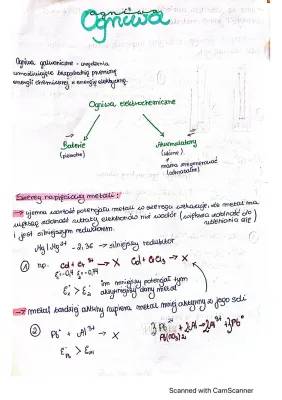 Ogniwa
Ogniwa galwaniczne - urządzenia
umożliwiające bezpośrednią przemianę
energii chemicznej w energię elektryczną.
Ogniwa elektrochemiczne
Baterie Akumulatory
(pierwotne) (wtórne)
można zregenerować
(odnawialne)
Szereg napięciowy metali:
→ ujemna wartość potencjału metali w szeregu wskazuje, że metal ma
większą zdolność oddania elektronów niż wodór (większa zdolność do
utleniania się)
i jest silniejszym reduktorem.
Mg | Mg²⁺ - 2,36 → silniejszy reduktor
① np. Cd + Cr³⁺ → X Cd + CrCl₃ → X
E₁ > E₂ im mniejszy potencjał tym
aktywniejszy dany metal
→ metal bardziej aktywny wypiera metal mniej aktywny z jego soli
② Pb + Al³⁺ → X 3Pb²⁺ + 2Al → 2Al³⁺ + 3Pb⁰
Pb(NO₃)₂
Scanned with CamScanner